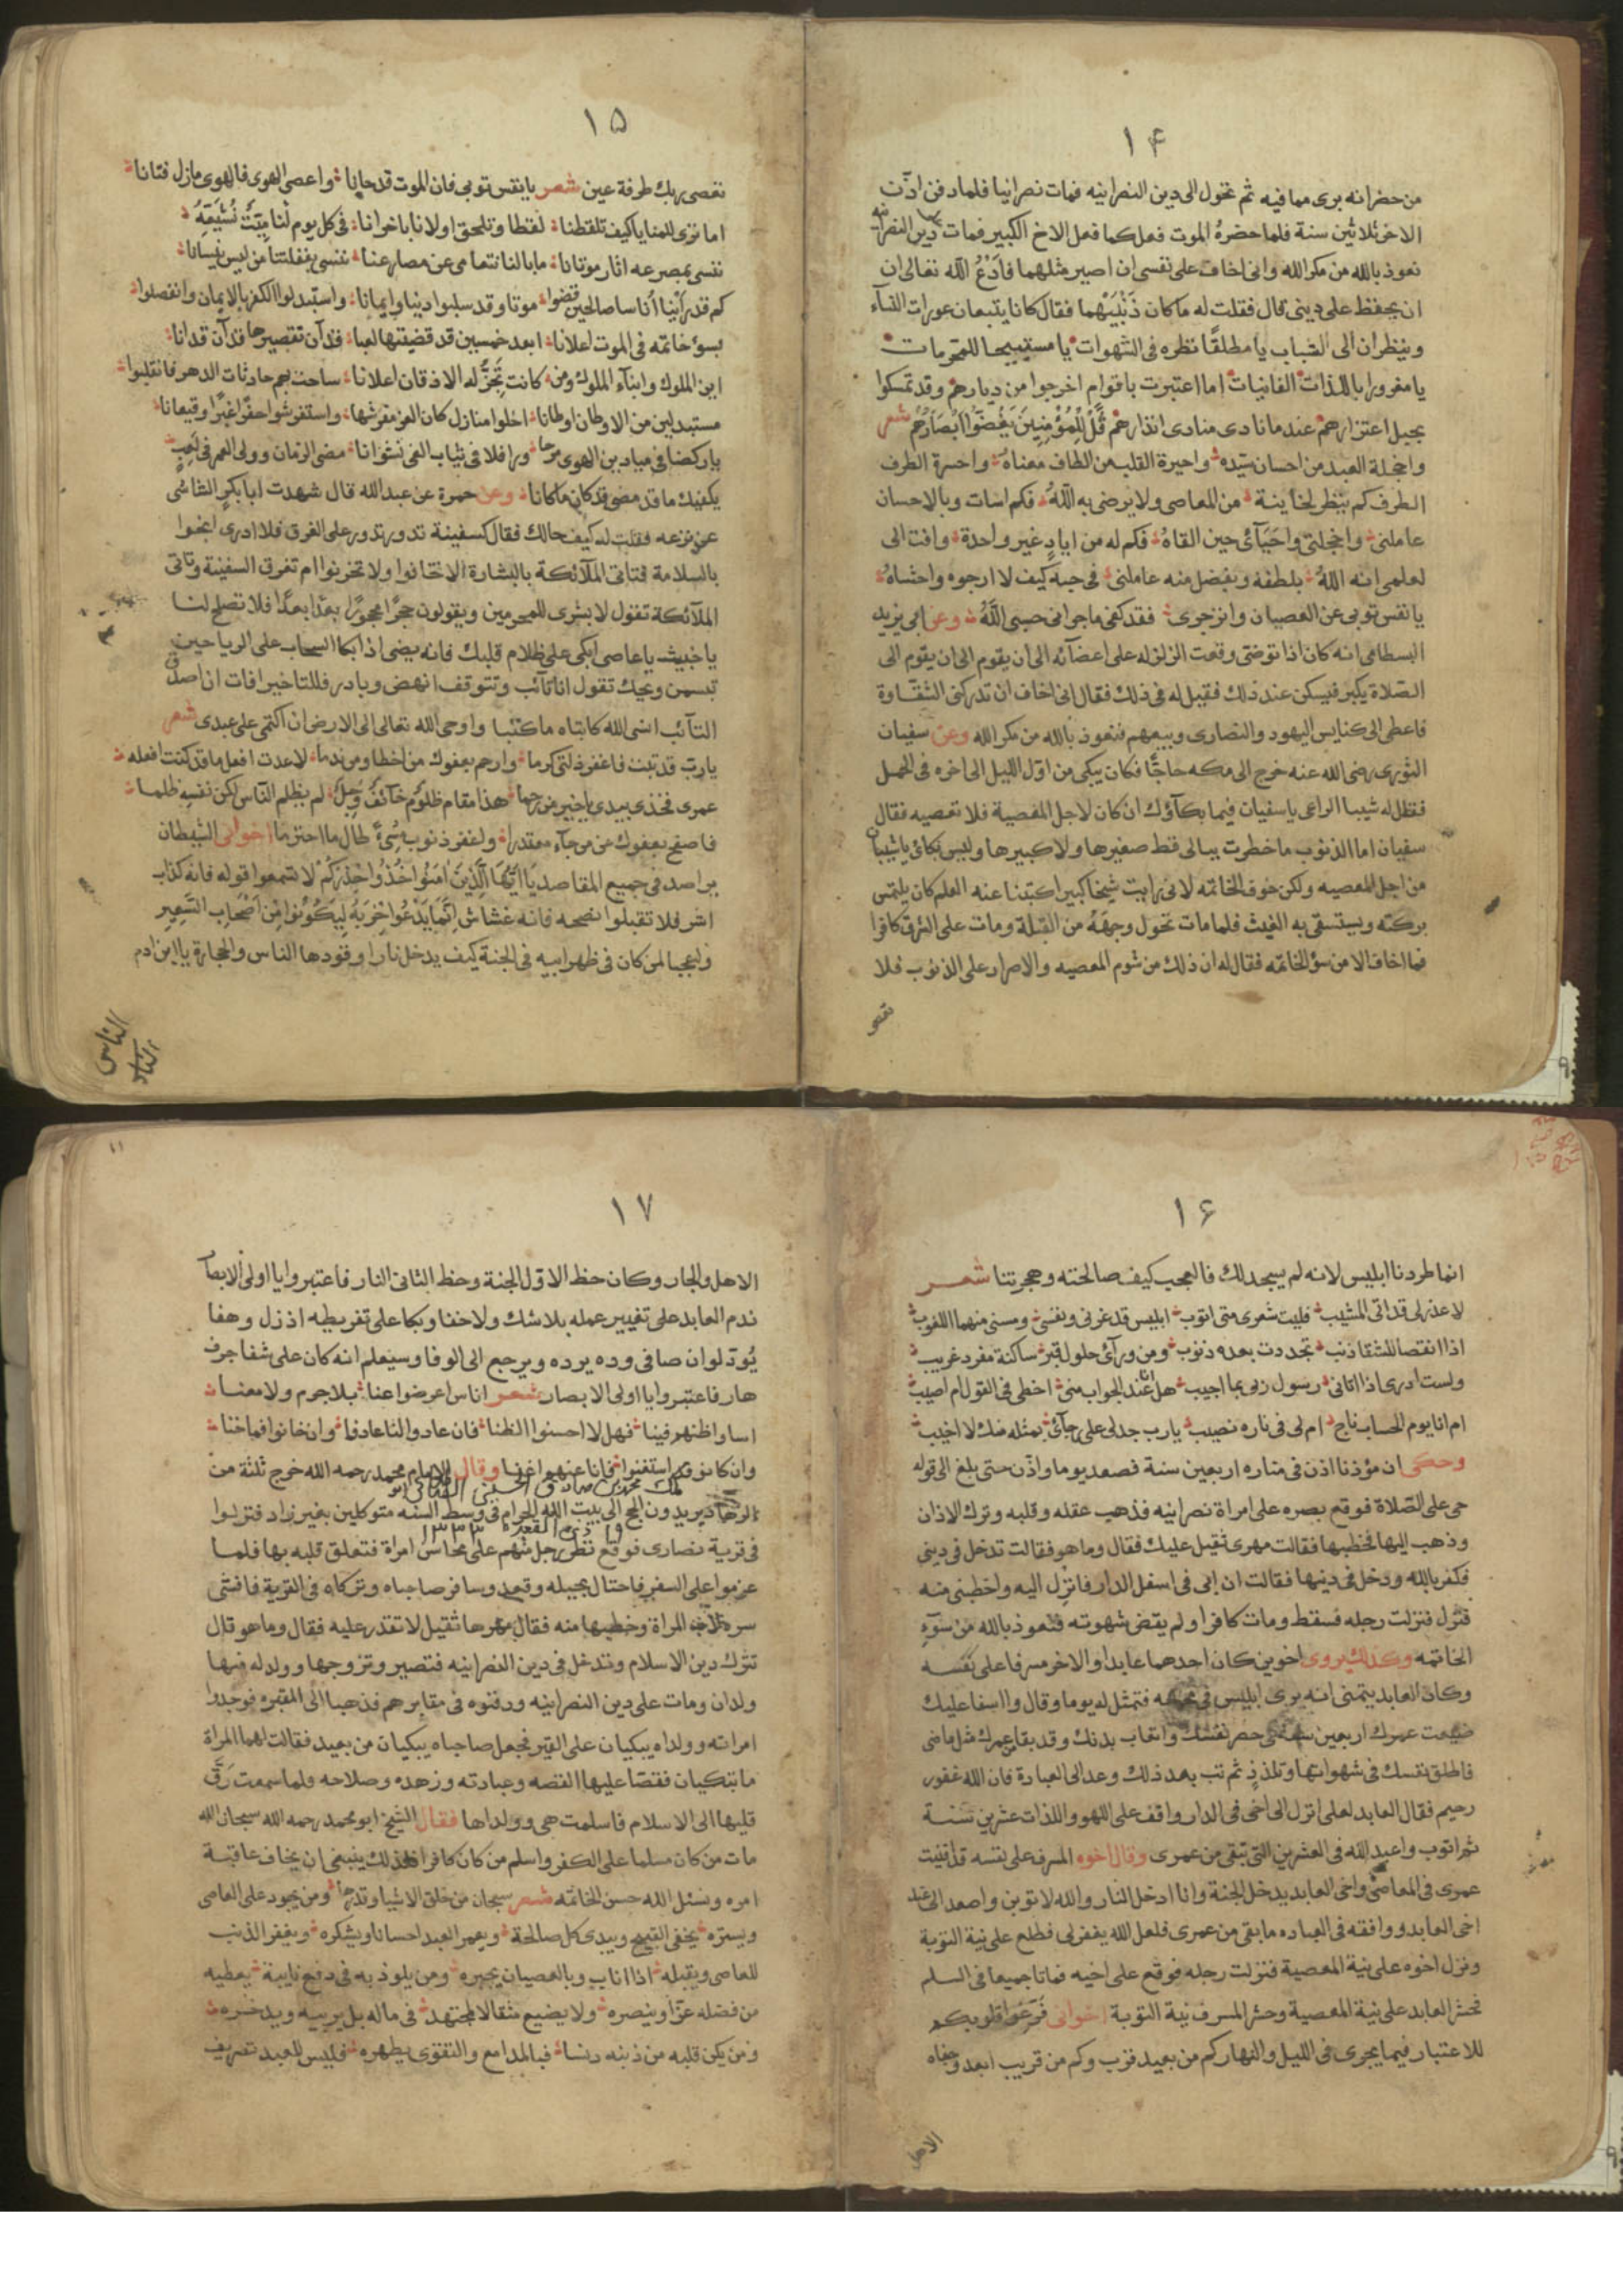 ١٤
من حضر انه برى مما فيه ثم تحول الى دين النصرانيه فمات نصرانيا فلما دفن اذن
الاخر ثلاثين سنة فلما حضره الموت فعل كما فعل الاخ الكبير فمات دين النصرانيه
نعوذ بالله من مكر الله وانى اخاف على نفسى ان اصير مثلهما فادع الله تعالى ان
ان يحفظ على دينى قال فقلت له ما كان ذنبهما فقال كانا يتبعان عورات النسآء
وينظران الى الشباب يا مطلقا نظره فى الشهوات يا مستبيحا للمحرمات
يا مغرورا باللذات الفانيات اما اعتبرت باقوام اخرجوا من ديارهم وقد تمسكوا
بحبل اعتزارهم عند ما نادى منادى انذارهم قل للمؤمنين يغضوا ابصارهم شعر
واخجلة العبد من احسان سيده واحيرة القلب من الطاف معناه واحسرة الطرف
الطرف كم ينظر لخاينة من المعاصى ولا يرضى به الله فكم اسات وبالاحسان
عاملنى واخجلتى واحيآئى حين القاه فكم له من اياد غير واحدة وافت الى
لعلمى انه الله بلطفه وبفضل منه عاملنى فى حبه كيف لا ارجوه واخشاه
يا نفس توبى عن العصيان وانزجرى فقد كفى ما جرا فى حسبى الله وعن ابى يزيد
البسطامى انه كان اذا توضى وقعت الزلزله على اعضآئه الى ان يقوم الى ان يقوم الى
الصلاة يكبر فيسكن عند ذلك فقيل له فى ذلك فقال انى اخاف ان تدركنى الشقاوة
فاعطى الى كنايس اليهود والنصارى وبيعهم فنعوذ بالله من مكر الله وعن سفيان
الثورى رضى الله عنه خرج الى مكه حاجا فكان يبكى من اول الليل الى اخره فى المحمل
فقال له شيبا الراعى يا سفيان فيما بكآؤك ان كان لاجل المعصية فلا تعصيه فقال
سفيان اما الذنوب ما خطرت ببالى قط صغيرها ولا كبيرها وليس بكائى يا شيبان
من اجل المعصيه ولكن خوف الخاتمه لانى رايت شيخا كبيرا كتبنا عنه العلم كان يلتمس
بركته ويستسقى به الغيث فلما مات تحول وجهه من القبلة ومات على الشرق كافرا
فما اخاف الا من سؤ الخاتمه فقال له ان ذلك من شوم المعصيه والاصرار على الذنوب فلا
تعصى
١٥
تعصى ربك طرفة عين شعر يا نفس توبى فان الموت قد حانا واعصى الهوى فالهوى ما زال فتانا
اما ترى للمنايا كيف تلقطنا لقطا وتلحق اولانا باخرانا فى كل يوم لنا ميت نشيعه
ننسى بمصرعه اثار موتانا ما بالنا نتعامى عن مصارعنا ننسى بغفلتنا من ليس ينسانا
كم قد راينا اناسا صالحين قضوا موتا وقد سلبوا دينا وايمانا واستبدلوا الكفر بالايمان وانفصلوا
بسوء خاتمه فى الموت اعلانا ابعد خمسين قد قضيتها لعبا قد آن تقصيرها قد آن قد انا
اين الملوك وابنآء الملوك ومن كانت تخر له الاذقان اعلانا صاحت بهم حادثات الدهر فانقلبوا
مستبدلين من الاوطان اوطانا اخلوا منازل كان العز مفرشها واستفرشوا حفرا غبرا وقيعانا
يا راكضا فى ميادين الهوى مرحا ورافلا فى ثياب الغى نشوانا مضى الزمان وولى العمر فى لعب
يكفيك ما قد مضى قد كان ما كانا وعن حمزة عن عبد الله قال شهدت ابا بكر الشاشى
عن نزعه فقلت له كيف حالك فقال كسفينة تدور تدور على الغرق فلا ادرى انجوا
بالسلامة فتاتى الملآئكة بالبشارة الا تخافوا ولا تحزنوا ام تغرق السفينة وتاتى
الملآئكة تقول لا بشرى للمجرمين ويقولون حجرا محجورا بعدا بعدا فلا تصلح لنا
يا خبيث يا عاصى ابكى على ظلام قلبك فانه يضى اذا بكا السحاب على الربا حين
تبسمن ويحك تقول انا تآئب وتتوقف انهض وبادر فللتاخير افات اذا صدق
التآئب انسى الله كاتباه ما كتبا واوحى الله تعالى الى الارض ان اكتمى على عبدى شعر
يا رب قد تبت فاغفر ذلتى كرما وارحم بعفوك من اخطا ومن ندما لا عدت افعل ما قد كنت افعله
عمرى فخذ بيدى يا خير من رحما هذا مقام ظلوم خآئف وجل لم يظلم الناس لكن نفسه ظلما
فاصفح بعفوك عن من جآء معتذرا واغفر ذنوب مسىء طال ما اجترما اخوانى الشيطان
براصد فى جميع المقاصد يا ايها الذين امنوا خذوا حذركم لا تسمعوا قوله فانه كذاب
اشر فلا تقبلوا نصحه فانه غشاش انما يدعوا حزبه ليكونوا من اصحاب السعير
واعجبا لمن كان فى ظهر ابيه فى الجنة كيف يدخل نارا وقودها الناس والحجارة يا ابن ادم
الناس
١٦
انما طردنا ابليس لانه لم يسجد لك فالعجب كيف صالحته وهجرتنا شعر
لا عذر لى قد اتى المشيب فليت شعرى متى اتوب ابليس قد غرنى ونفسى ومسنى منهما اللغوب
اذا انقضا للشقا ذنب تجددت بعده ذنوب ومن ورآئى حلول قبر ساكنة مفرد غريب
ولست ادرى اذا اتانى رسول ربى بما اجيب هل انا عند الجواب منى اخطى فى القول ام اصيب
ام انا يوم الحساب ناج ام لى فى ناره نصيب يا رب جد لى على رجآئى بمثله منك لا اخيب
وحكى ان مؤذنا اذن فى مناره اربعين سنة فصعد يوما واذن حتى بلغ الى قوله
حى على الصلاة فوقع بصره على امراة نصرانيه فذهب عقله وقلبه وترك الاذان
وذهب اليها فخطبها فقالت مهرى ثقيل عليك فقال وما هو فقالت تدخل فى دينى
فكفر بالله ودخل فى دينها فقالت ان ابى فى اسفل الدار فانزل اليه واخطبنى منه
فنزل فنزلت رجله فسقط ومات كافرا ولم يقض شهوته فنعوذ بالله من سوء
الخاتمه وكذلك يروى اخوين كان احدهما عابدا والاخر مسرفا على نفسه
وكان العابد يتمنى انه يرى ابليس فى فتمثل له يوما وقال وا اسفا عليك
ضيعت عمرك اربعين سنة فى حصر نفسك واتعاب بدنك وقد بقا من عمرك مثل ما مضى
فاطلق نفسك فى شهواتها وتلذذ ثم تب بعد ذلك وعد الى العبادة فان الله غفور
رحيم فقال العابد لعلى انزل الى اخى فى الدار واقف على اللهو واللذات عشرين سنة
ثم اتوب واعبد الله فى العشرين التى تبقى من عمرى وقال اخوه المسرف على نفسه قد افنيت
عمرى فى المعاصى واخى العابد يدخل الجنة وانا ادخل النار والله لاتوبن واصعد الى عند
اخى العابد ووافقه فى العباده ما بقى من عمرى فلعل الله يغفر لى فطلع على نية التوبة
ونزل اخوه على نية المعصية فنزلت رجله فوقع على اخيه فماتا جميعا فى السلم
فحشر العابد على نية المعصية وحشر المسرف نية التوبة اخوانى فرغوا قلوبكم
للاعتبار فيما يجرى فى الليل والنهار كم من بعيد قرب وكم من قريب ابعد وجفاه
الاهل
١٧
الاهل والجار وكان حظ الاول الجنة وحظ الثانى النار فاعتبروا يا اولى الابصار
ندم العابد على تغيير عمله بلا شك ولا خفا وبكا على تفريطه اذ زل وهفا
يود لو ان صافى وده يرده ويرجع الى الوفا وسيعلم انه كان على شفا جرف
هار فاعتبروا يا اولى الابصار شعر اناس اعرضوا عنا بلا جرم ولا معنا
اساوا ظنهم فينا فهل لا احسنوا الظنا فان عادوا لنا عادنا وان خانوا فما خنا
وان كانو قد استغنوا فانا عنهم اغنا وقال الامام محمد رحمه الله خرج ثلثة من
محمد بن صادق الحسينى
الزهاد يريدون الحج الى بيت الله الحرام فى وسط السنه متوكلين بغير زاد فنزلوا
١٩ ذى القعدة ١٣٣٣
فى قرية نصارى فوقع نظر رجل منهم على محاسن امراة فتعلق قلبه بها فلما
عزموا على السفر فاحتال بحيله وقعد وسافر صاحباه وتركاه فى القرية فافشى
سره المراة وخطبها منه فقال مهرها ثقيل لا تقدر عليه فقال وما هو قال
تترك دين الاسلام وتدخل فى دين النصرانيه فتنصر وتزوجها وولد له منها
ولدان ومات على دين النصرانيه ودفنوه فى مقابرهم فذهبا الى المقبره فوجدوا
امراته وولداه يبكيان على القبر فجعل صاحباه يبكيان من بعيد فقالت لهما المراة
ما يبكيان فقصا عليها القصه وعبادته وزهده وصلاحه ولما سمعت رق
قلبها الى الاسلام فاسلمت هى وولداها فقال الشيخ ابو محمد رحمه الله سبحان الله
مات من كان مسلما على الكفر واسلم من كان كافرا فلذلك ينبغى ان يخاف عاقبة
امره ونسئل الله حسن الخاتمه شعر سبحان من خلق الاشيا وقدرها ومن يجود على العاصى
ويستره يخفى القبيح ويبدى كل صالحة ويعمر العبد احسانا ويشكره ويغفر الذنب
للعاصى ويقبله اذا اناب وبالعصيان يجبره ومن يلوذ به فى دفع نايبة يعطيه
من فضله عزا وينصره ولا يضيع مثقالا لمجتهد فى ماله بل يربيه ويدخره
ومن يكن قلبه من ذنبه دنسا فبالمدامع والتقوى يطهره فليس للعبد تصريف